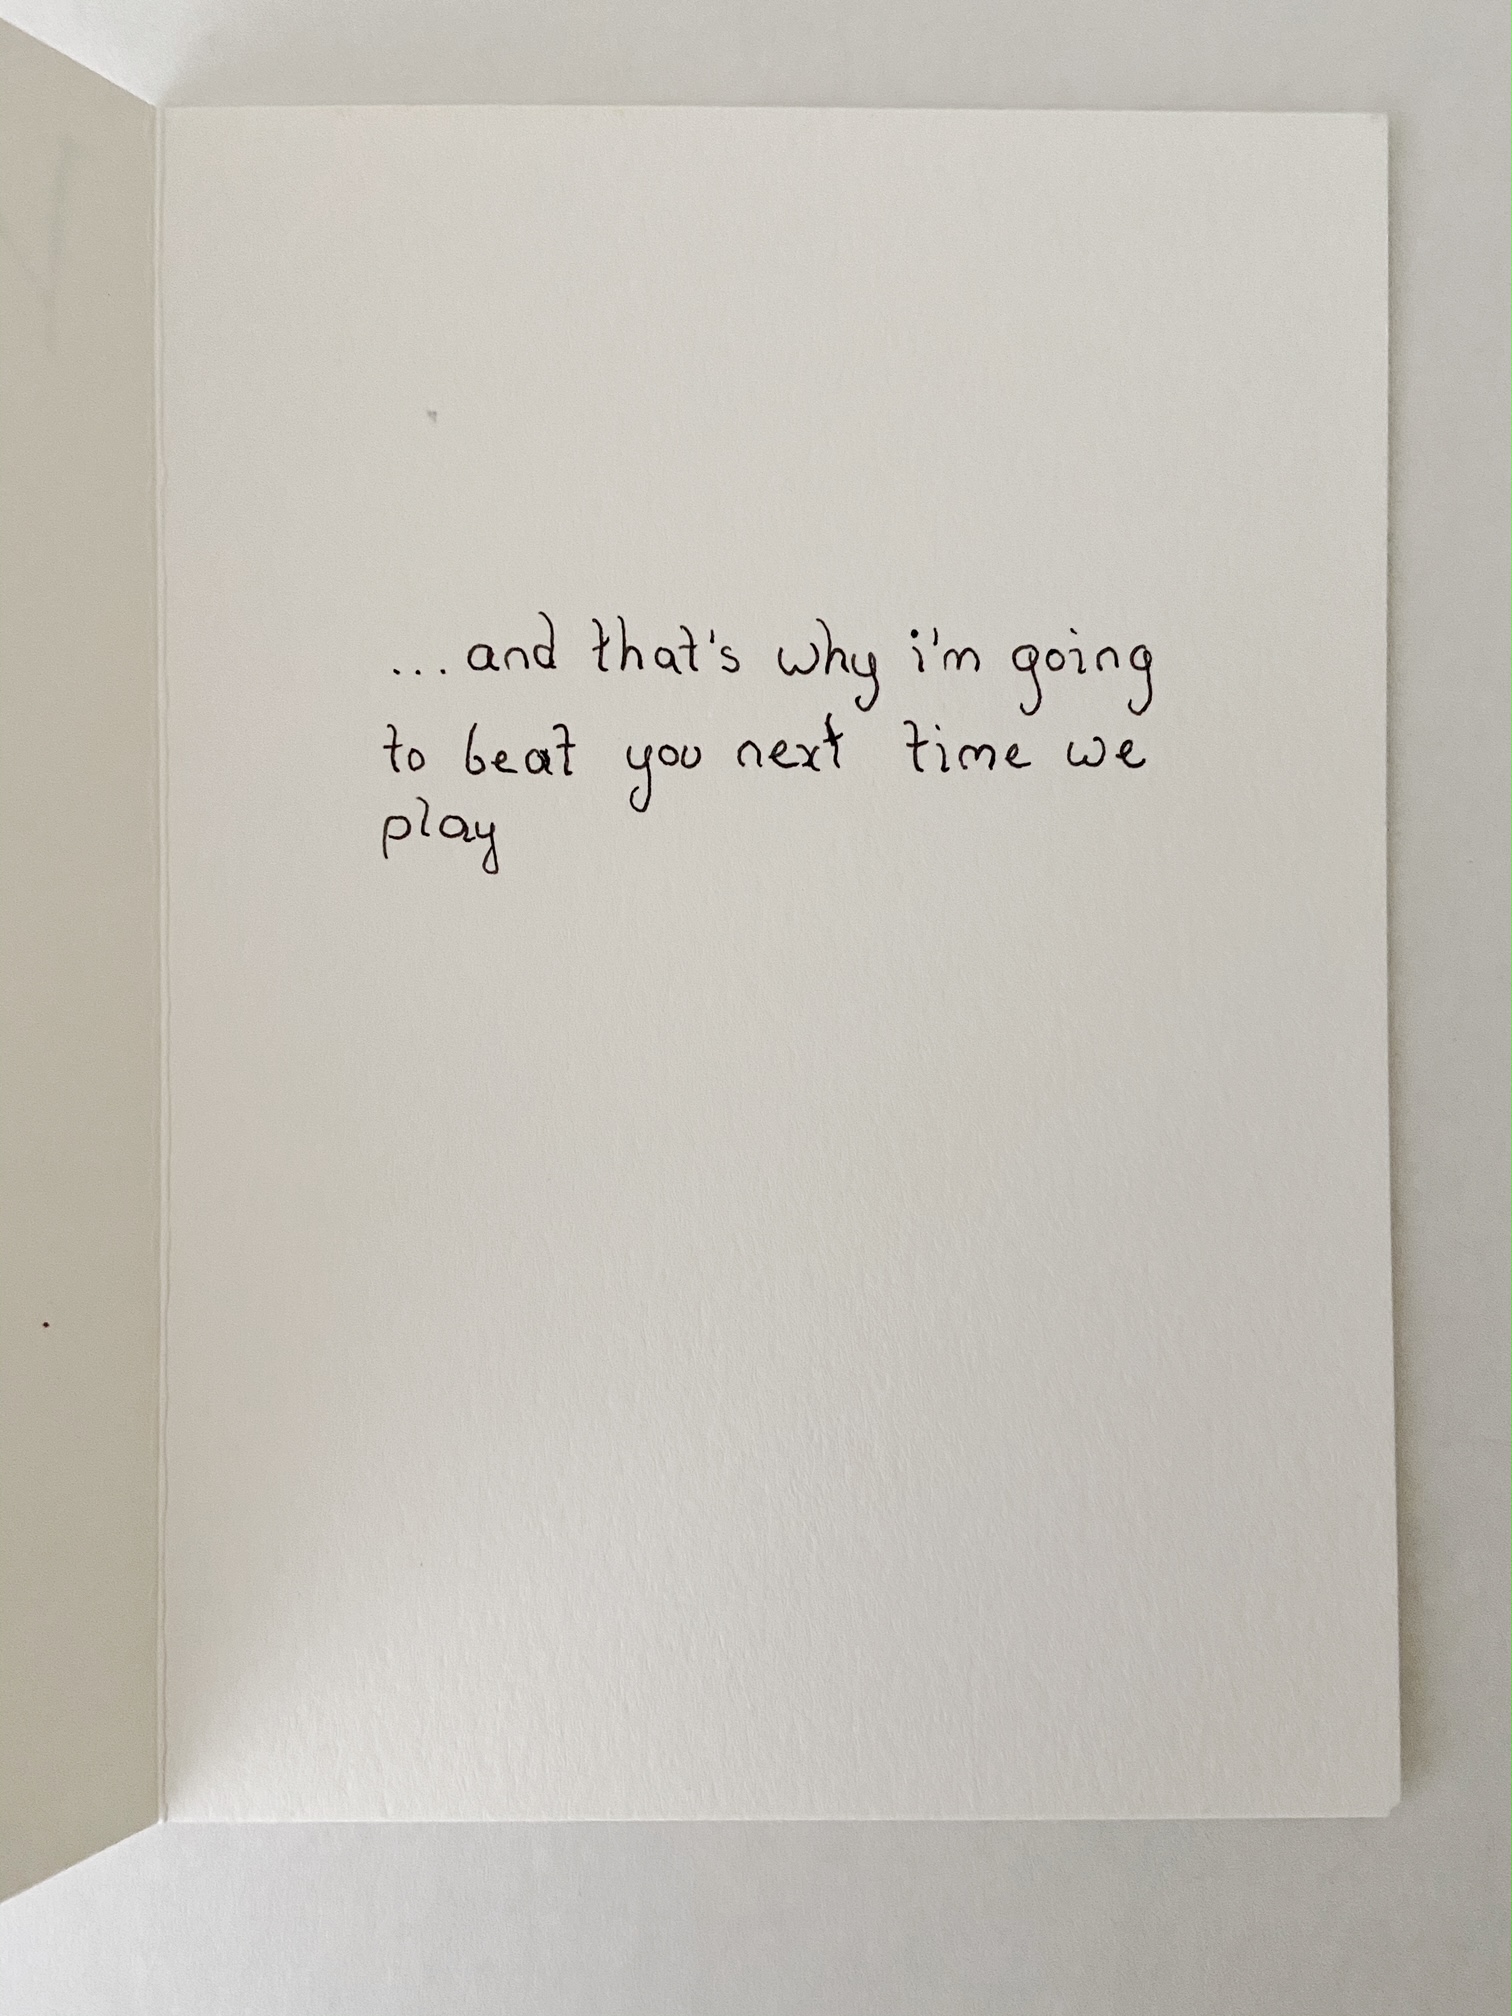 ...and that's why i'm going
to beat you next time we
play